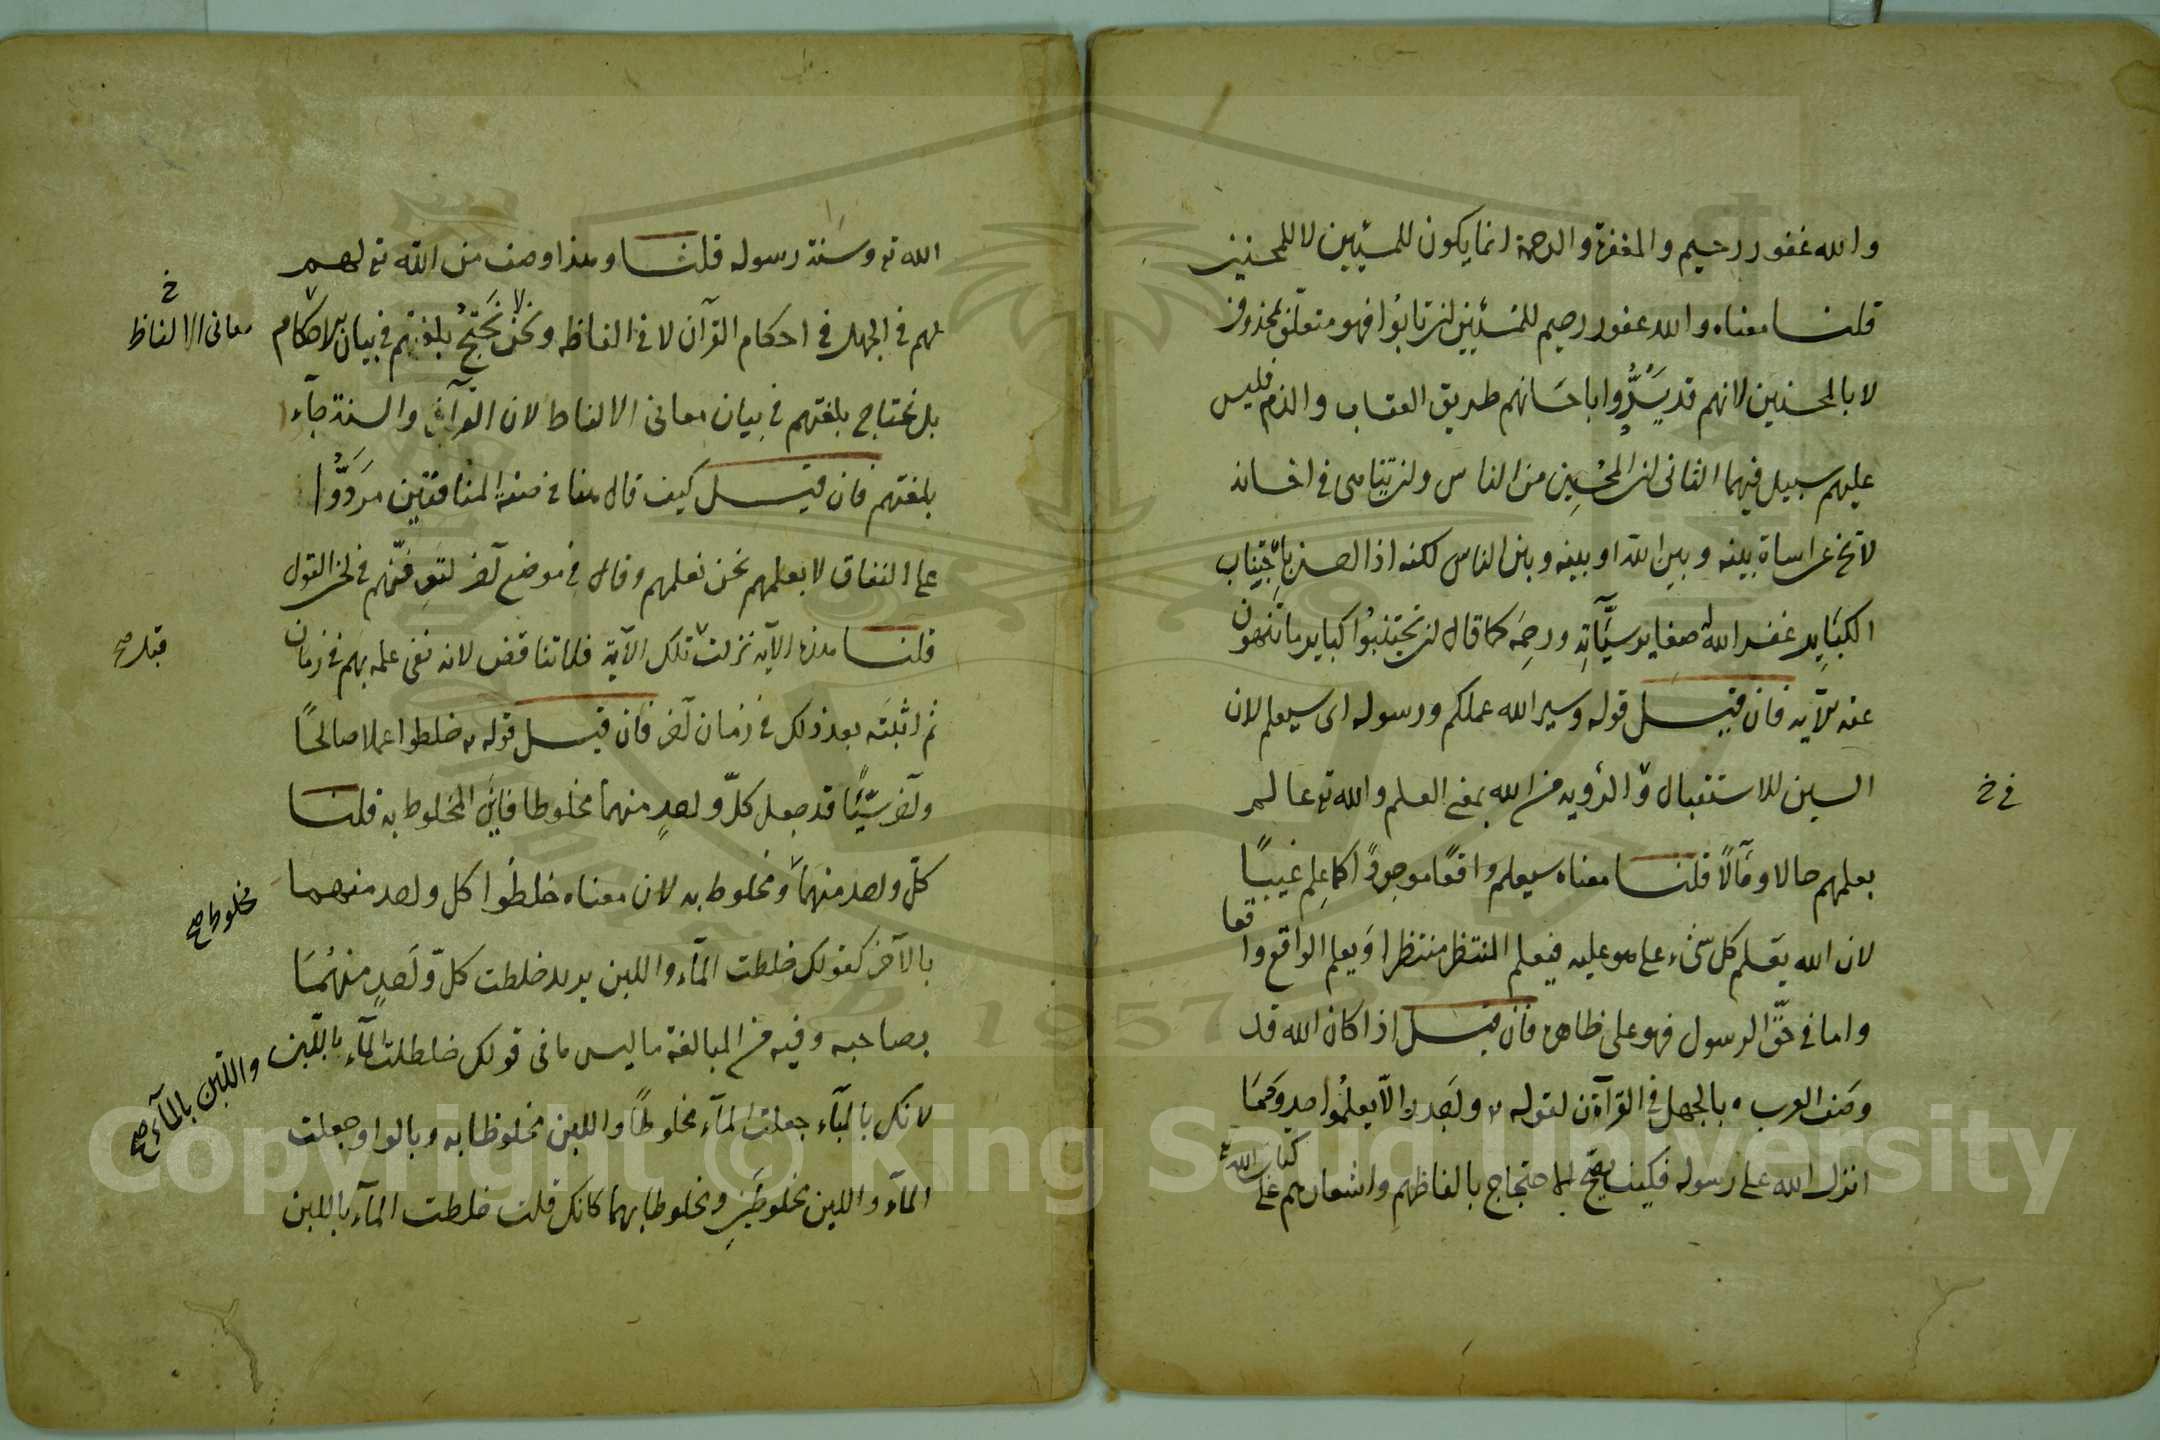 والله غفور رحيم والمغفرة والرحمة انما يكون للمسيئين لا للمحسنين
قلنا معناه والله غفور رحيم للمسيئين ان تابوا فهو متعلق بمحذوف
لا بالمحسنين لانهم قد سدوا باحسانهم طريق العتاب والذم فليس
عليهم سبيل فيهما الثاني ان المحسن من الناس وان تناهى في احسانه
لا يخ عن اساة بينه وبين الله او بينه وبين الناس لكنه اذا احسن باجتناب
الكباير غفر الله له صغاير سيآته ورحمه كما قال ان تجتنبوا كباير ما تنهون
عنه الآيه فان قيل قوله وسير الله عملكم ورسوله اى سيعلم لان
السين للاستقبال و الرؤيه من الله بمعنى العلم والله تع عالم
في خ
بعلمهم حالا ومآلا قلنا معناه سيعلم واقعا موجودا كما علم غيبا
لان الله يعلم كل شىء على ما هو عليه فيعلم المنتظر منتظرا ويعلم الواقع واقعا
واما في حق الرسول فهو على ظاهره فان قيل اذا كان الله قد
وصف العرب بالجهل في القرآن لقوله واجدر الا يعلموا حدود ما
انزل الله على رسوله فكيف يصح الاحتجاج بالفاظهم واشعارهم على كتاب الله تع
الله تع وسنة رسوله قلنا وهذا وصف من الله تع لهم
لهم في الجهل في احكام القرآن لا في الفاظه ونحن لا نحتج بلغتهم في بيان الاحكام
معانى الالفاظ خ
بل نحتاج بلغتهم في بيان معانى الالفاظ لان القرآن والسنة جاء
بلغتهم فان قيل كيف قال هنا في صفة المنافقين مردوا
على النفاق لا تعلمهم نحن نعلمهم وقال في موضع آخر لتعرفنهم في لحن القول
قلنا هذه الآيه نزلت تلك الآية فلا تناقض لانه نفى علمه بهم في زمان
قبل صح
ثم اثبته بعد ذلك في زمان آخر فان قيل قوله تع خلطوا عملا صالحا
وآخر سيئا قد جعل كل واحد منهما مخلوطا فاين المخلوط به قلنا
كل واحد منهما ومخلوط به لان معناه خلطوا كل واحد منهما
مخلوط صح
بالآخر كقولك خلطت المآء واللبن يريد خلطت كل واحد منهما
بصاحبه وفيه من المبالغة ما ليس ما في قولك خلطت المآء باللبن
واللبن بالمآء صح
لانك بالبآء جعلت المآء مخلوطا واللبن مخلوطا به وبالواو جعلت
المآء واللبن مخلوطين ومخلوطا بهما كانك قلت خلطت المآء باللبن
Copyright © King Saud University
1957